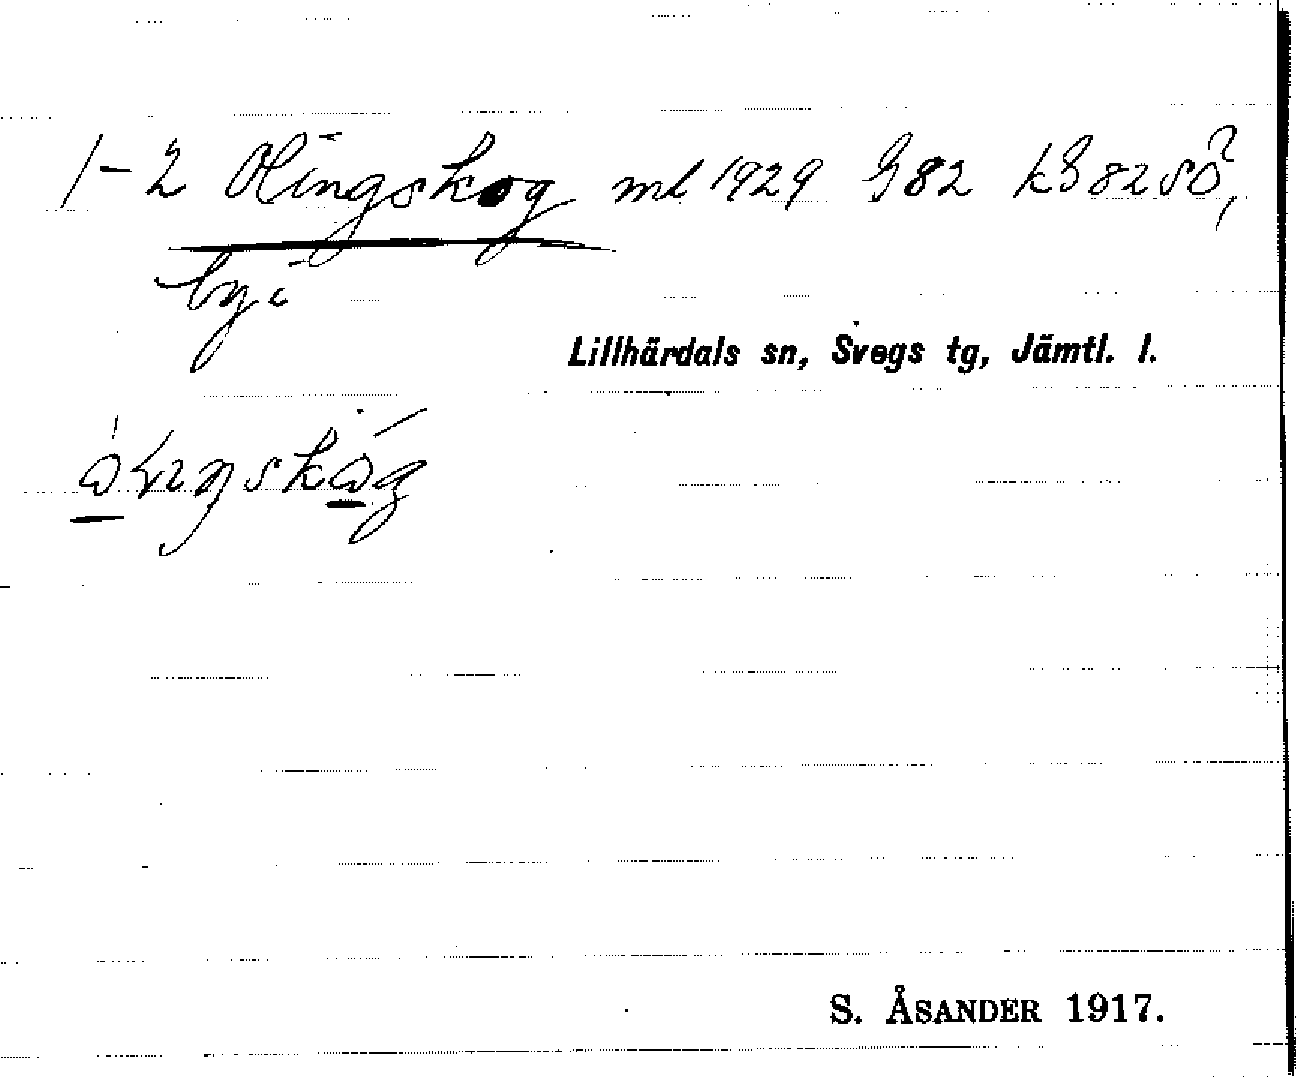 1-2 Olingskog ml 1929 G82 kG82SÖ,
by i
Lillhärdals sn, Svegs tg, Jämtl. l.
S. ÅSANDER 1917.